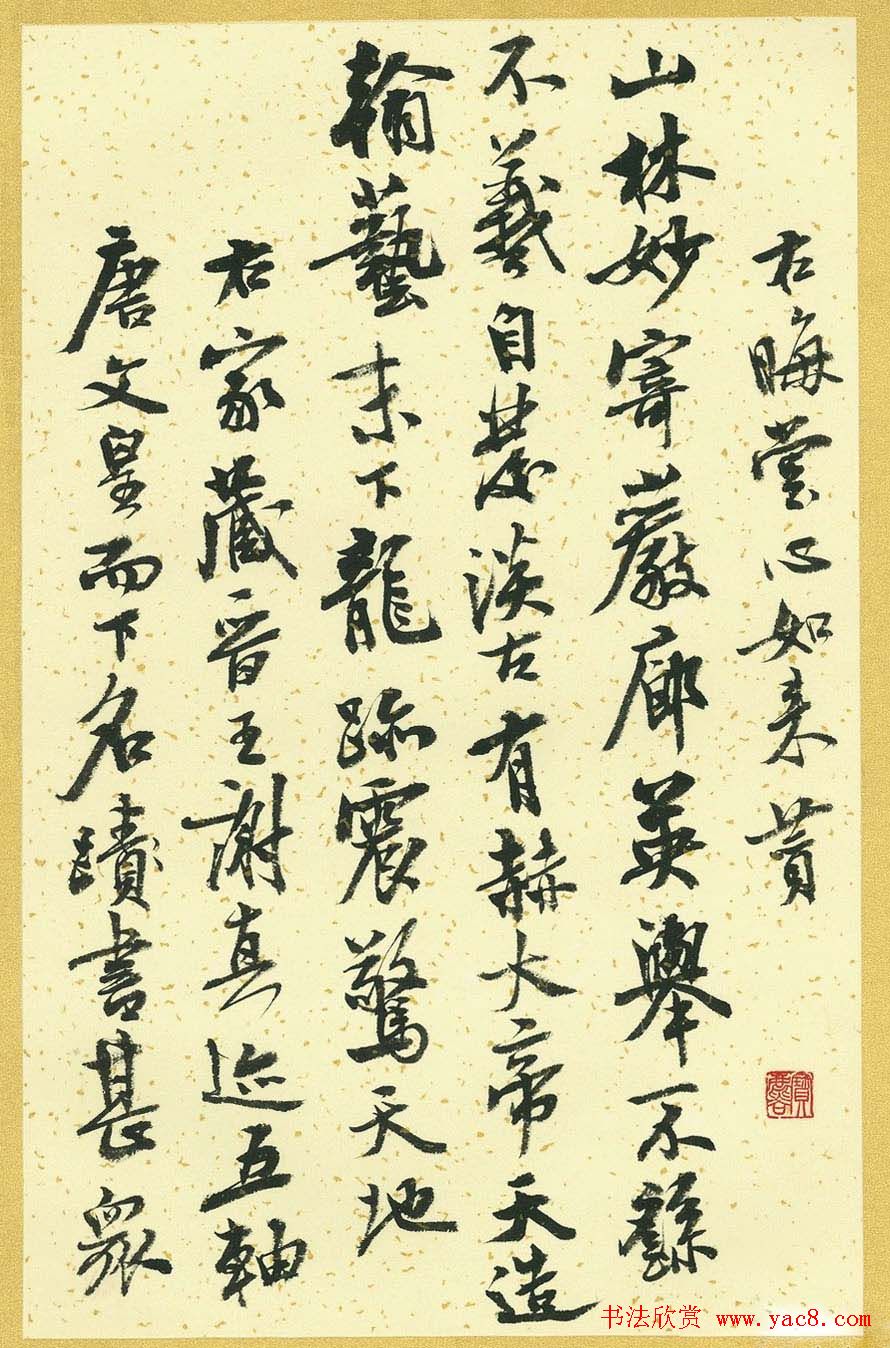 右晦心如来贊
山林妙寄巖廊英舉不繇
不羲自發淡古有赫大帝天造
翰藝末下龍跡震驚天地
右家藏晉王謝真迹五軸
唐文皇而下名蹟書甚衆
书法欣赏 www.yac8.com